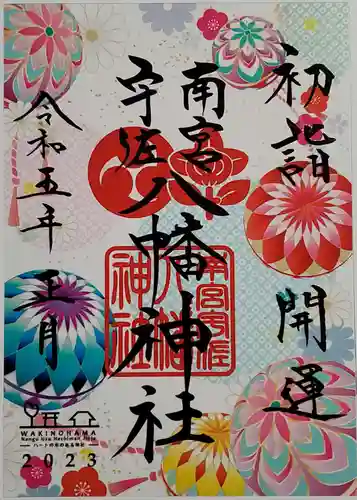 初詣 開運
南宮
宇佐
八幡神社
令和五年 正月
南宮宇佐
八幡
神社
WAKINOHAMA
Nangu Usa Hachiman Jinja
ハートの木のある神社
2023